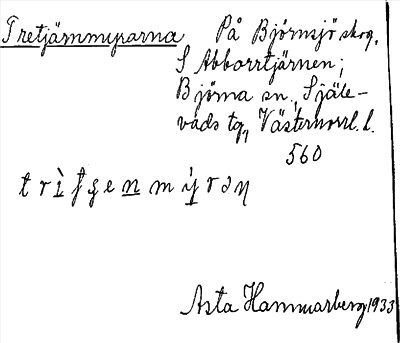 Tretjärnmyrarna På Björnsjö skog,
S Abborrtjärnen;
Björna sn., Själe-
vads tg, Västernorrl. l.
560
Asta Hammarberg 1933